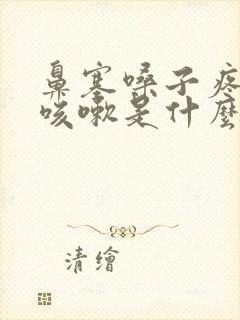 鼻塞嗓子疼
咳嗽是什麼
清繪